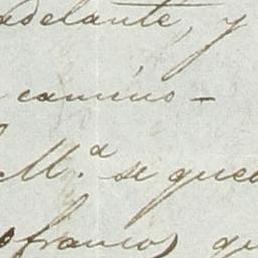 adelante, y
camino -
M.ª se qued
francos, qu